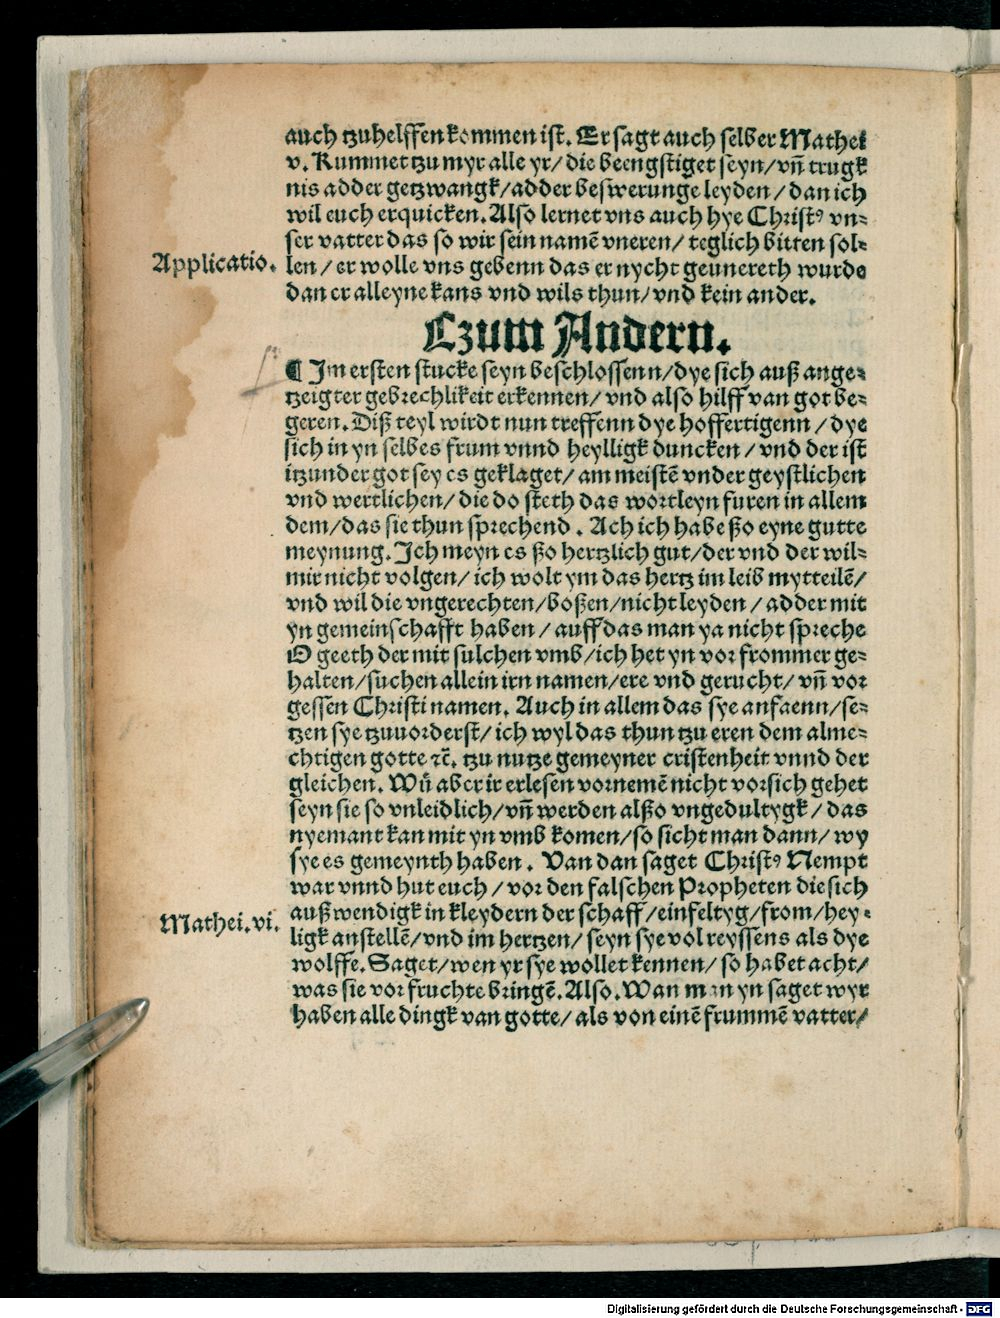 auch tzuhelffen kommen ist. Er sagt auch selber Mathei
v. Kummet tzu myr alle yr/ die beengstiget seyn/ vñ trugk
nis adder getzwangk/ adder beswerunge leyden/ dan ich
wil euch erquicken. Also lernet vns auch hye Christꝰ vn-
ser vatter das so wir sein namē vneren/ teglich bitten sol-
Applicatio.
len/ er wolle vns gebenn das er nycht geunereth wurde
dan er alleyne kans vnd wils thun/ vnd kein ander.
Czum Andern.
¶ Im ersten stucke seyn beschlossenn/ dye sich auß ange-
tzeigter gebrechlikeit erkennen/ vnd also hilff van got be-
geren. Diß teyl wirdt nun treffenn dye hoffertigenn/ dye
sich in yn selbes frum vnnd heylligk duncken/ vnd der ist
itzunder got sey es geklaget/ am meistē vnder geystlichen
vnd wertlichen/ die do steth das wortleyn furen in allem
dem/ das sie thun sprechend. Ach ich habe ßo eyne gutte
meynung. Ich meyn es ßo hertzlich gut/ der vnd der wil-
mir nicht volgen/ ich wolt ym das hertz im leib mytteilē/
vnd wil die vngerechten/ boßen/ nicht leyden/ adder mit
yn gemeinschafft haben/ auff das man ya nicht spreche
O geeth der mit sulchen vmb/ ich het yn vor frommer ge-
halten/ suchen allein irn namen/ ere vnd gerucht/ vñ vor
gessen Christi namen. Auch in allem das sye anfaenn/ se-
tzen sye tzuuorderst/ ich wyl das thun tzu eren dem alme-
chtigen gotte ⁊c̄. tzu nutze gemeyner cristenheit vnnd der
gleichen. Wū aber ir erlesen vornemē nicht vorsich gehet
seyn sie so vnleidlich/ vñ werden alßo vngedultygk/ das
nyemant kan mit yn vmb komen/ so sicht man dann/ wy
sye es gemeynth haben. Van dan saget Christꝰ Nempt
war vnnd hut euch/ vor den falschen Propheten die sich
Mathei. vi.
außwendigk in kleydern der schaff/ einfeltyg/ from/ hey-
ligk anstellē/ vnd im hertzen/ seyn sye vol reyssens als dye
wolffe. Saget/ wen yr sye wollet kennen/ so habet acht/
was sie vor fruchte bringē. Also. Wan man yn saget wyr
haben alle dingk van gotte/ als von einē frummē vatter/
Digitalisierung gefördert durch die Deutsche Forschungsgemeinschaft - DFG